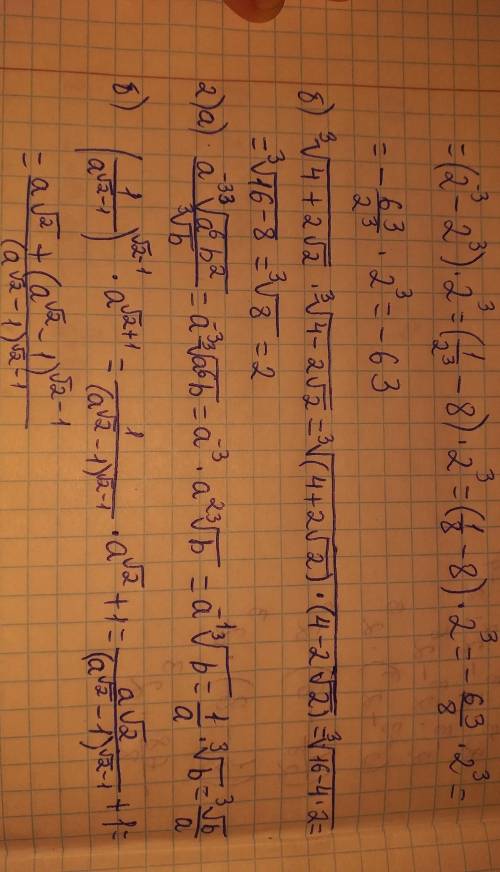 = (2⁻³ - 2³) · 2³ = (1/2³ - 8) · 2³ = (1/8 - 8) · 2³ = - 63/8 · 2³ =
= - 63/2³ · 2³ = - 63
б) ³√(4 + 2√2) · ³√(4 - 2√2) = ³√((4 + 2√2) · (4 - 2√2)) = ³√(16 - 4 · 2 =
= ³√(16 - 8) = ³√8 = 2
2) а) (a⁻³ ³√(a⁶b²))/(³√b) = a⁻³ ³√(a⁶b) = a⁻³ · a² ³√b = a⁻¹ ³√b = 1/a · ³√b = ³√b/a
б) (1/(a√2-1))^(√2-1) · a^(√2+1) = 1/(a√2 - 1)^(√2-1) · a√2 + 1 = a√2/(a√2 - 1)^(√2-1) + 1 =
= (a√2 + (a√2 - 1)^(√2-1))/(a√2 - 1)^(√2-1)